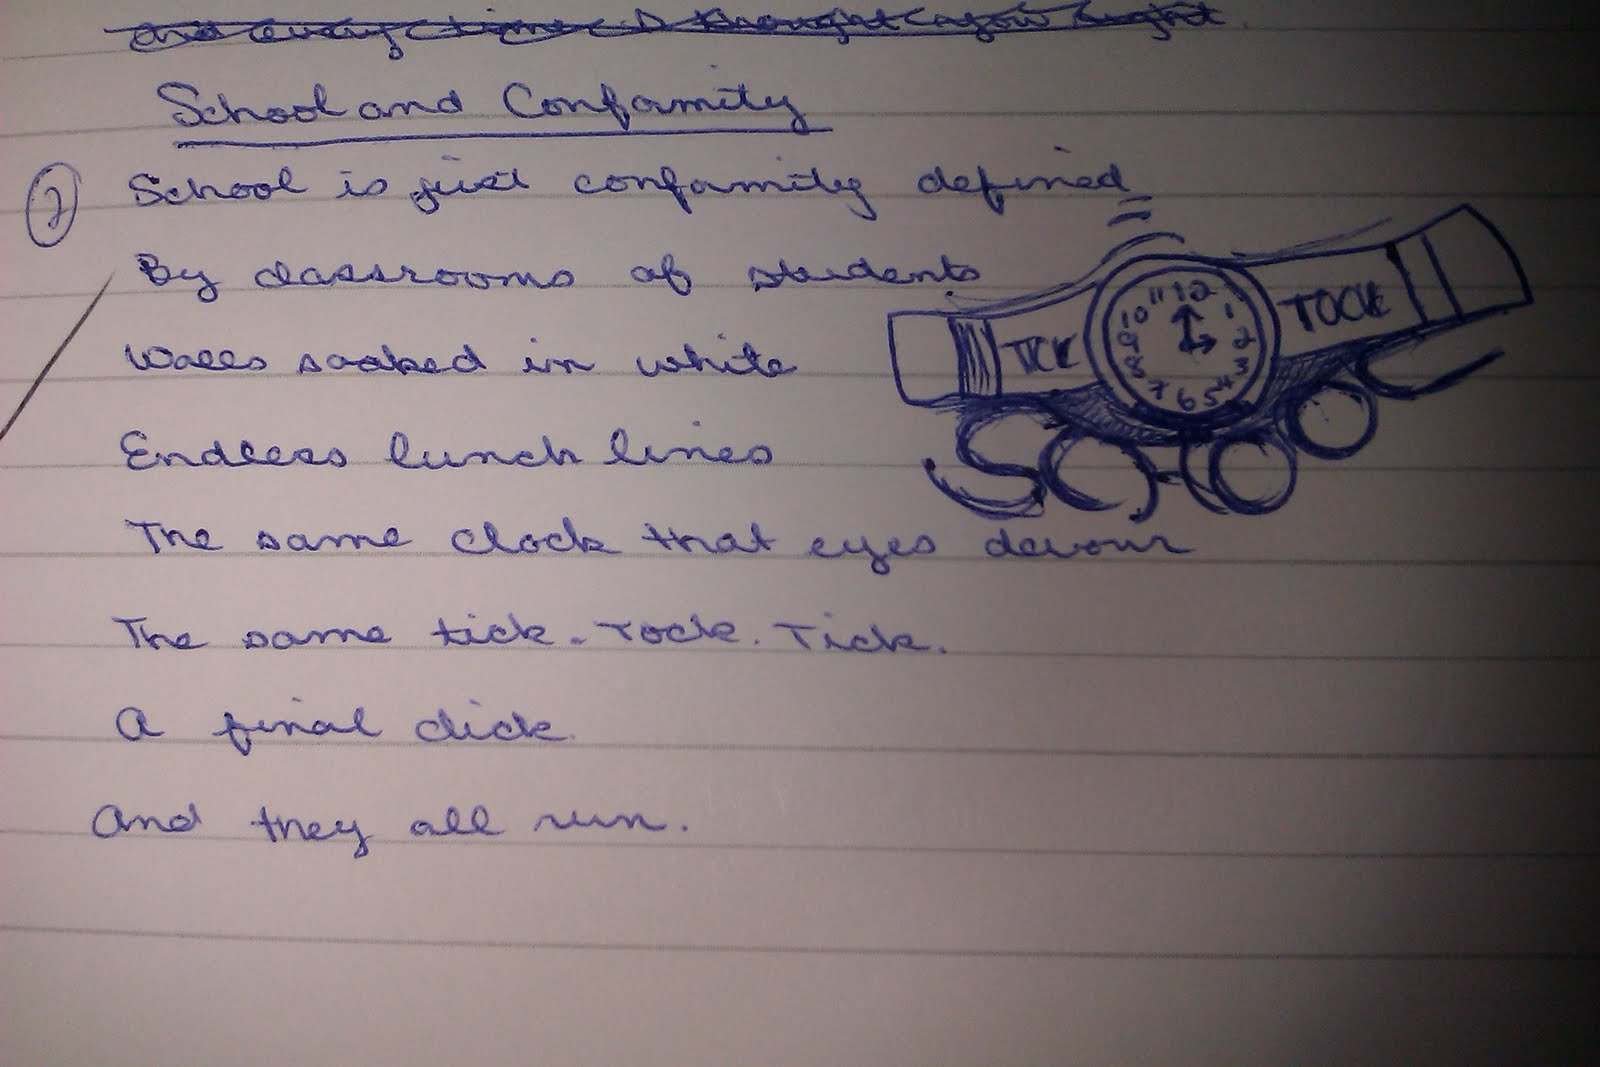 and every time I thought
School and Conformity
① School is just conformity defined
By classrooms of students
Walls soaked in white
Endless lunch lines
The same clock that eyes devour
The same tick. Tock. Tick.
A final click.
And they all run.
TICK
12 1 2 3 4 5 6 7 8 9 10 11
TOCK
SCHOOL